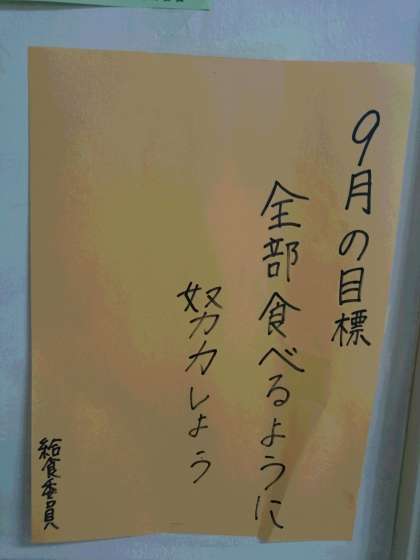 9月の目標
全部食べるように
努力しょう
給食委員